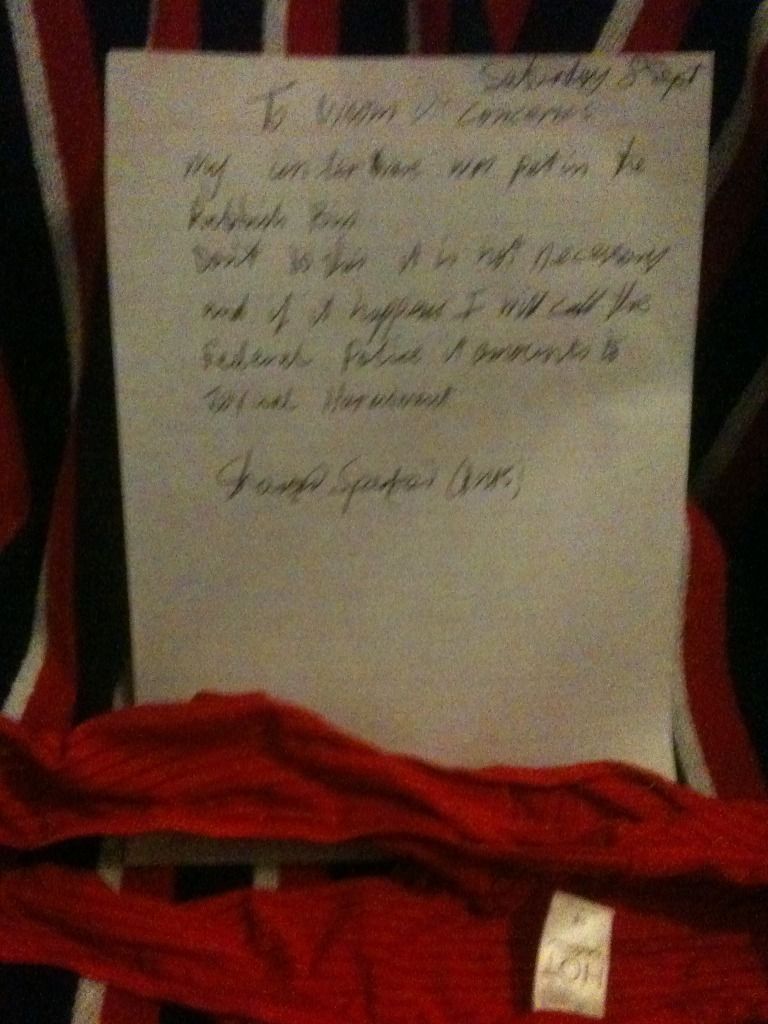 Saturday 8 Sept
To Whom It Concerns
My underwear was put in the
Rubbish Bin
Don't do this it is not necessary
and if it happens I will call the
Federal Police it amounts to
Sexual Harassment